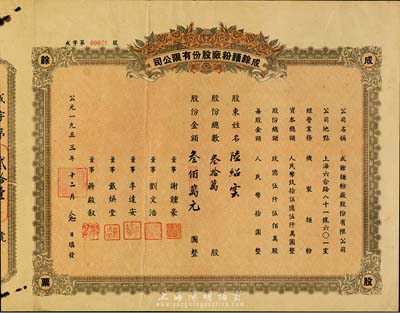 成字第 00021 號
成餘麵粉廠股份有限公司
成
餘
股
票
公司名稱 成餘麵粉廠股份有限公司
公司地點 上海六合路八十一號六〇一室
經營業務 機製麵粉
資本總額 人民幣玖拾伍億伍仟萬圓整
股份總額 玖億伍仟伍佰萬股
每股金額 人民幣拾圓整
股東姓名 陸紹雲
股份總數 叁拾萬 股
股份金額 叁佰萬元 圓整
董事 謝鍾豪
董事 劉文浩
董事 李達安
董事 戴煥堂
董事 蔣啟叙
公元一九五三年十二月 日填發
成字第
號
上海陽明拍賣